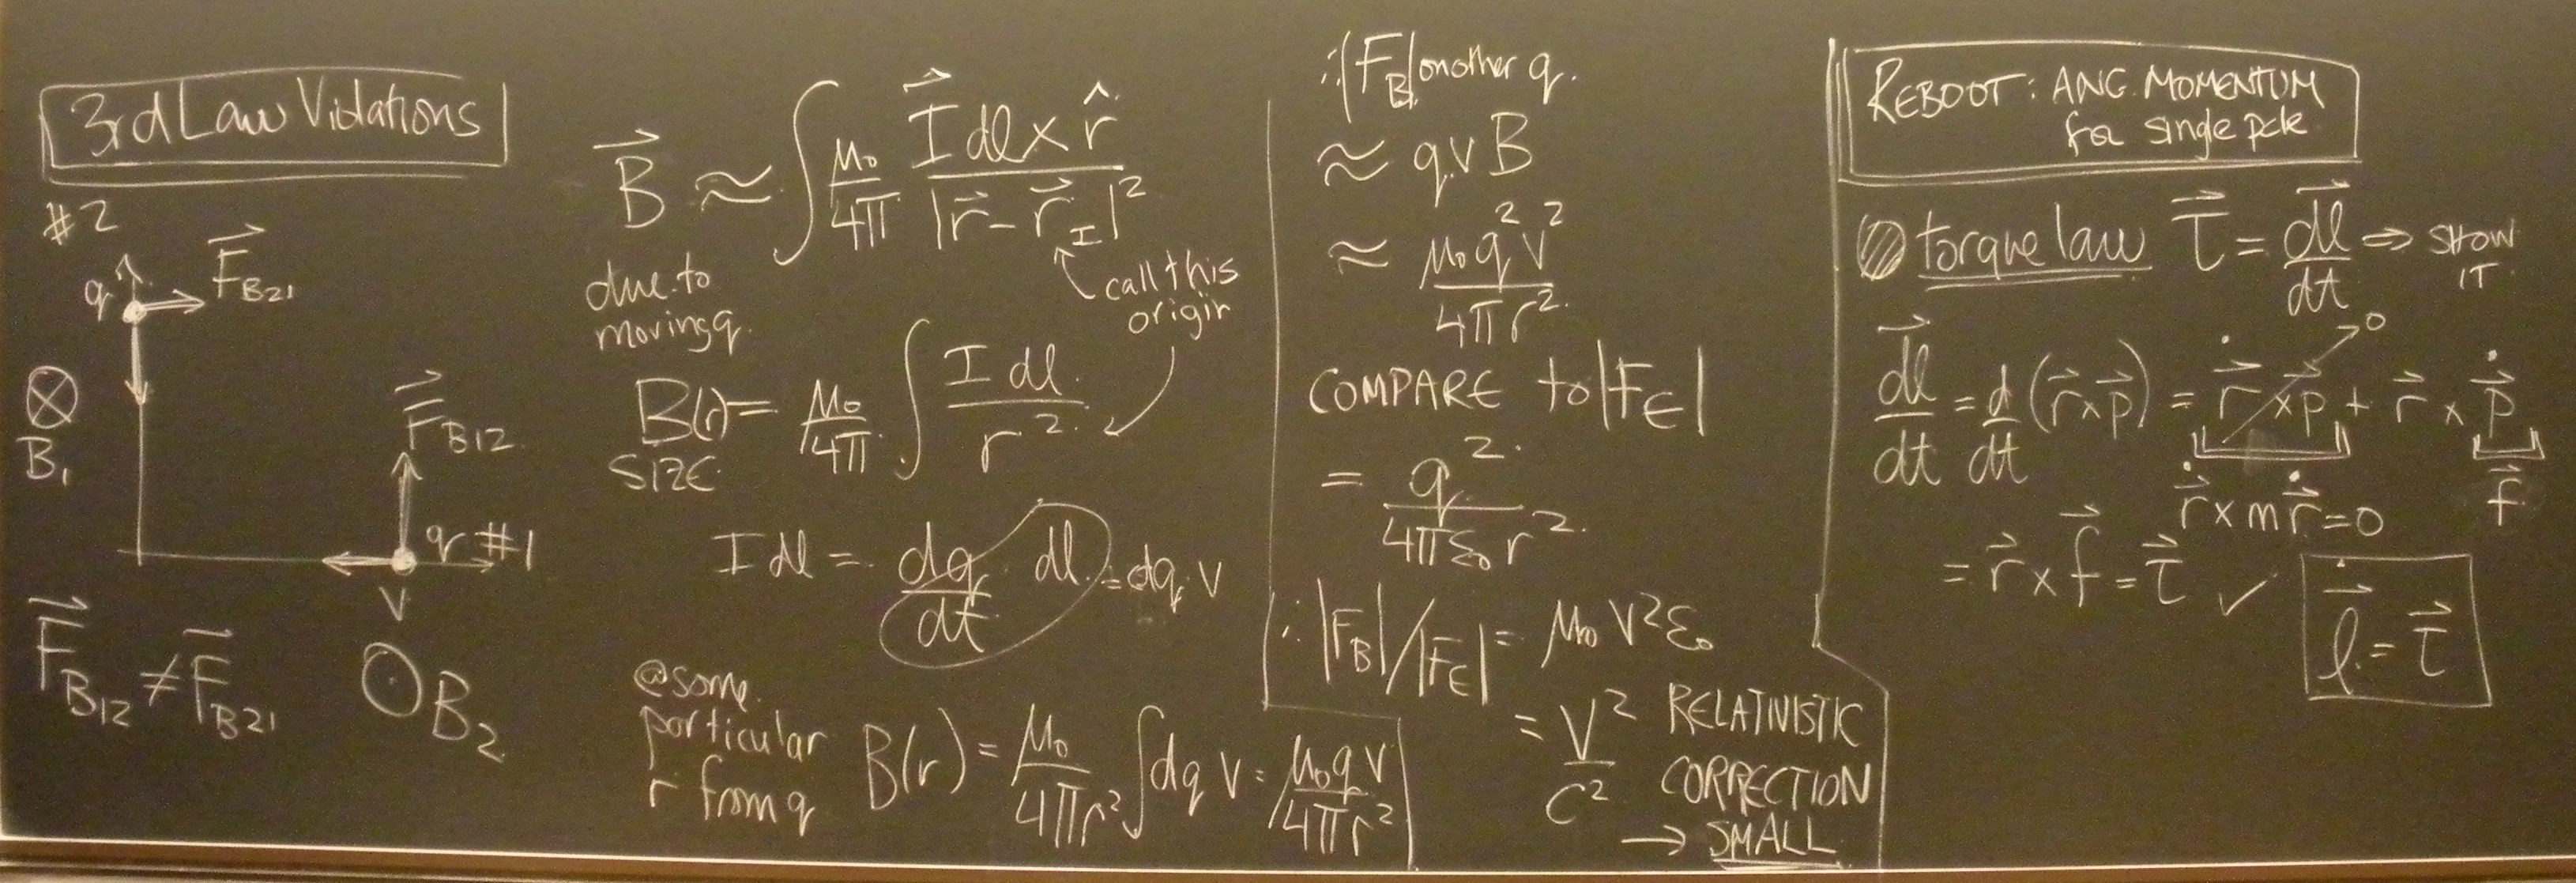 3rd Law Violations
#2
q F⃗_B21
⊗
B₁
F⃗_B12
q #1
v
F⃗_B12 ≠ F⃗_B21
⊙ B₂
B⃗ ≈ ∫ μ₀/4π I⃗ dl × r̂ / |r⃗ - r⃗_I|²
due to
moving q.
call this
origin
B(r) = μ₀/4π ∫ I dl / r²
SIZE
I dl = dq/dt dl = dq v
@some
particular
r from q
B(r) = μ₀/4πr² ∫ dq v = μ₀qv/4πr²
∴ |F_B| on other q.
≈ qvB
≈ μ₀q²v²/4πr²
COMPARE to |F_E|
= q²/4πε₀r²
∴ |F_B|/|F_E| = μ₀v²ε₀
= v²/c² RELATIVISTIC
CORRECTION
→ SMALL
REBOOT: ANG. MOMENTUM
for single pcle
torque law τ⃗ = dl⃗/dt ⇒ SHOW
IT
dl⃗/dt = d/dt (r⃗ × p⃗) = ṙ⃗ × p⃗ + r⃗ × ṗ⃗
0
ṙ⃗ × mṙ⃗ = 0
f⃗
= r⃗ × f⃗ = τ⃗ ✓
l̇⃗ = τ⃗